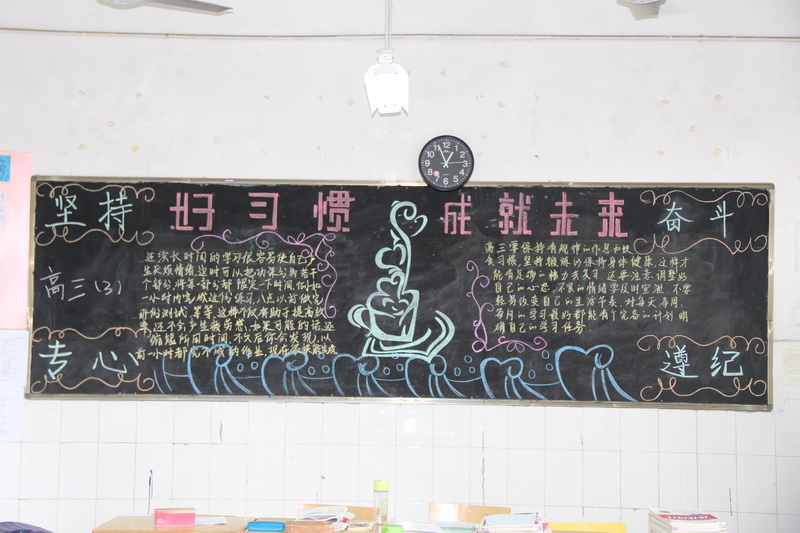 好习惯 成就未来
坚持
奋斗
高三(3)
专心
遵纪
连续长时间的学习很容易使自己产
生厌烦情绪,这时可以把功课分为若干
个部分,将每一部分都限定一个时间,例如
一小时内完成这份练习,八点以前做完
那份测试,等等,这样不仅有助于提高效
率,还不会产生疲劳感,如果可能的话,还
缩短所用时间,不久后你会发现,以
前一小时都完不成的作业,现在
高三要保持有规律的作息和饮
食习惯,坚持锻炼以保持身体健康,这样才
能有足够的精力去复习,还要注意调整好
自己的心态,不良的情绪要及时宣泄,不要
轻易改变自己的生活节奏,对每天每周
每月的学习最好都能有个完备的计划,明
确自己的学习任务.
12
1
2
3
4
5
6
7
8
9
10
11